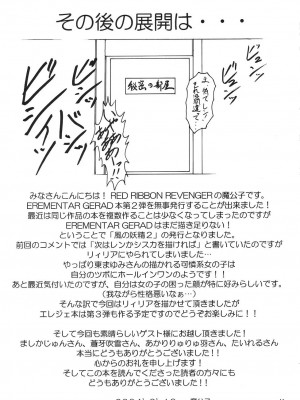 その後の展開は・・・
ビュンッ
ビュンッ
ビシィッ
ビシィッ
秘密の部屋
あああっ!!
みなさんこんにちは！ RED RIBBON REVENGERの魔公子です。
EREMENTAR GERAD本第2弾を無事発行することが出来ました！
最近は同じ作品の本を複数作ることは少なくなってしまったのですが
EREMENTAR GERADはまだ描き足りない！
ということで「風の妖精2」の発行となりました。
前回のコメントでは「次はレンかシスカを描ければ」と書いていたのですが
リィリアにやられてしまいました…
やっぱり東まゆみさんの描かれる可憐系女の子は
自分のツボにホールインワンのようです！！
あと最近気付いたのですが、自分は女の子の困った顔が特に好みらしいです。
（我ながら性格悪いなぁ…）
そんな訳で今回はリィリアを描かせて頂きましたが
エレジェ本は第3弾も作る予定ですのでどうぞお楽しみに！！
そして今回も素晴らしいゲスト様にお越し頂きました！
ましかじゅんさん、蒼牙吹雪さん、あかりりゅりゅ羽さん、たいれるさん
本当にどうもありがとうございます！！
心からのお礼を申し上げます！
そしてこの本を読んでくださった読者の方々にも
どうもありがとうございました！！